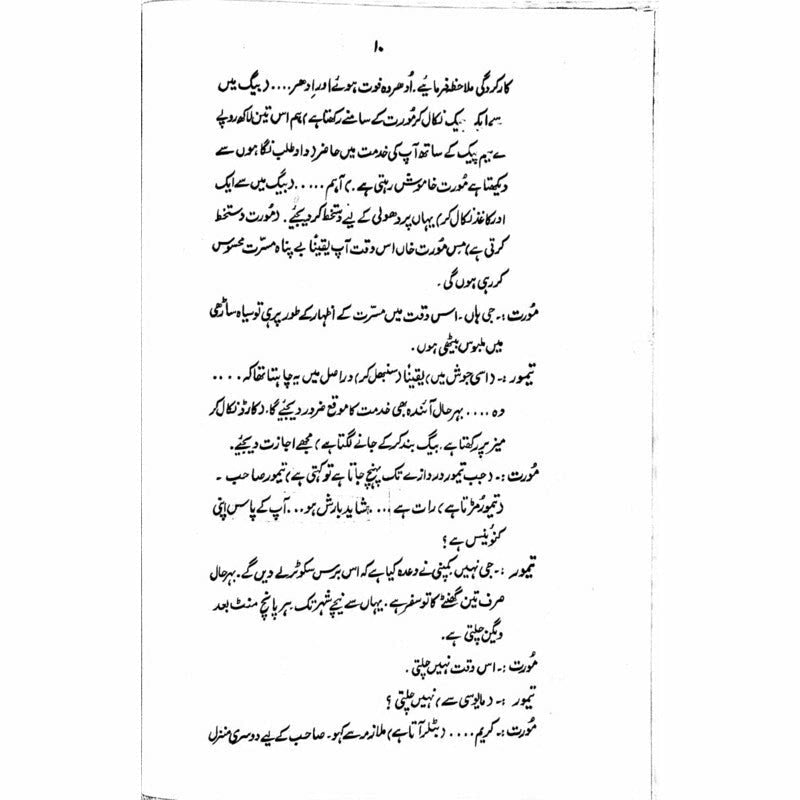 ۱۰
کارکردگی ملاحظہ فرمائیے۔ اُدھر وہ فوت ہوئے اور اِدھر.... (بیگ میں
سے ایک چیک نکال کر مُورت کے سامنے رکھتا ہے) ہم اس تین لاکھ روپے
کے چیک کے ساتھ آپ کی خدمت میں حاضر (داد طلب نگاہوں سے
دیکھتا ہے مُورت خاموش رہتی ہے۔) آہم..... (بیگ میں سے ایک
اور کاغذ نکال کر) یہاں پر وصولی کے لیے دستخط کر دیجئے۔ (مُورت دستخط
کرتی ہے) مِس مُورت خاں اس وقت آپ یقیناً بے پناہ مسرّت محسوس
کر رہی ہوں گی۔
مُورت :۔ جی ہاں۔ اس وقت میں مسرّت کے اظہار کے طور پر ہی تو سیاہ ساڑھی
میں ملبوس بیٹھی ہوں۔
تیمور :۔ (اسی جوش میں) یقیناً (سنبھل کر) دراصل میں یہ چاہتا تھا کہ....
وہ.... بہرحال آئندہ بھی خدمت کا موقع ضرور دیجئے گا۔ (کارڈ نکال کر
میز پر رکھتا ہے۔ بیگ بند کر کے جانے لگتا ہے) مجھے اجازت دیجئے۔
مُورت :۔ (جب تیمور دروازے تک پہنچ جاتا ہے تو کہتی ہے) تیمور صاحب۔
(تیمور مُڑتا ہے) رات ہے.... شاید بارش ہو... آپ کے پاس اپنی
کنوینس ہے؟
تیمور :۔ جی نہیں کمپنی نے وعدہ کیا ہے کہ اس برس سکوٹر لے دیں گے۔ بہرحال
صرف تین گھنٹے کا تو سفر ہے۔ یہاں سے نیچے شہر تک ہر پانچ منٹ بعد
ویگن چلتی ہے۔
مُورت :۔ اس وقت نہیں چلتی۔
تیمور :۔ (مایوسی سے) نہیں چلتی؟
مُورت :۔ کریم.... (بٹلر آتا ہے) ملازمہ سے کہو۔ صاحب کے لیے دوسری منزل